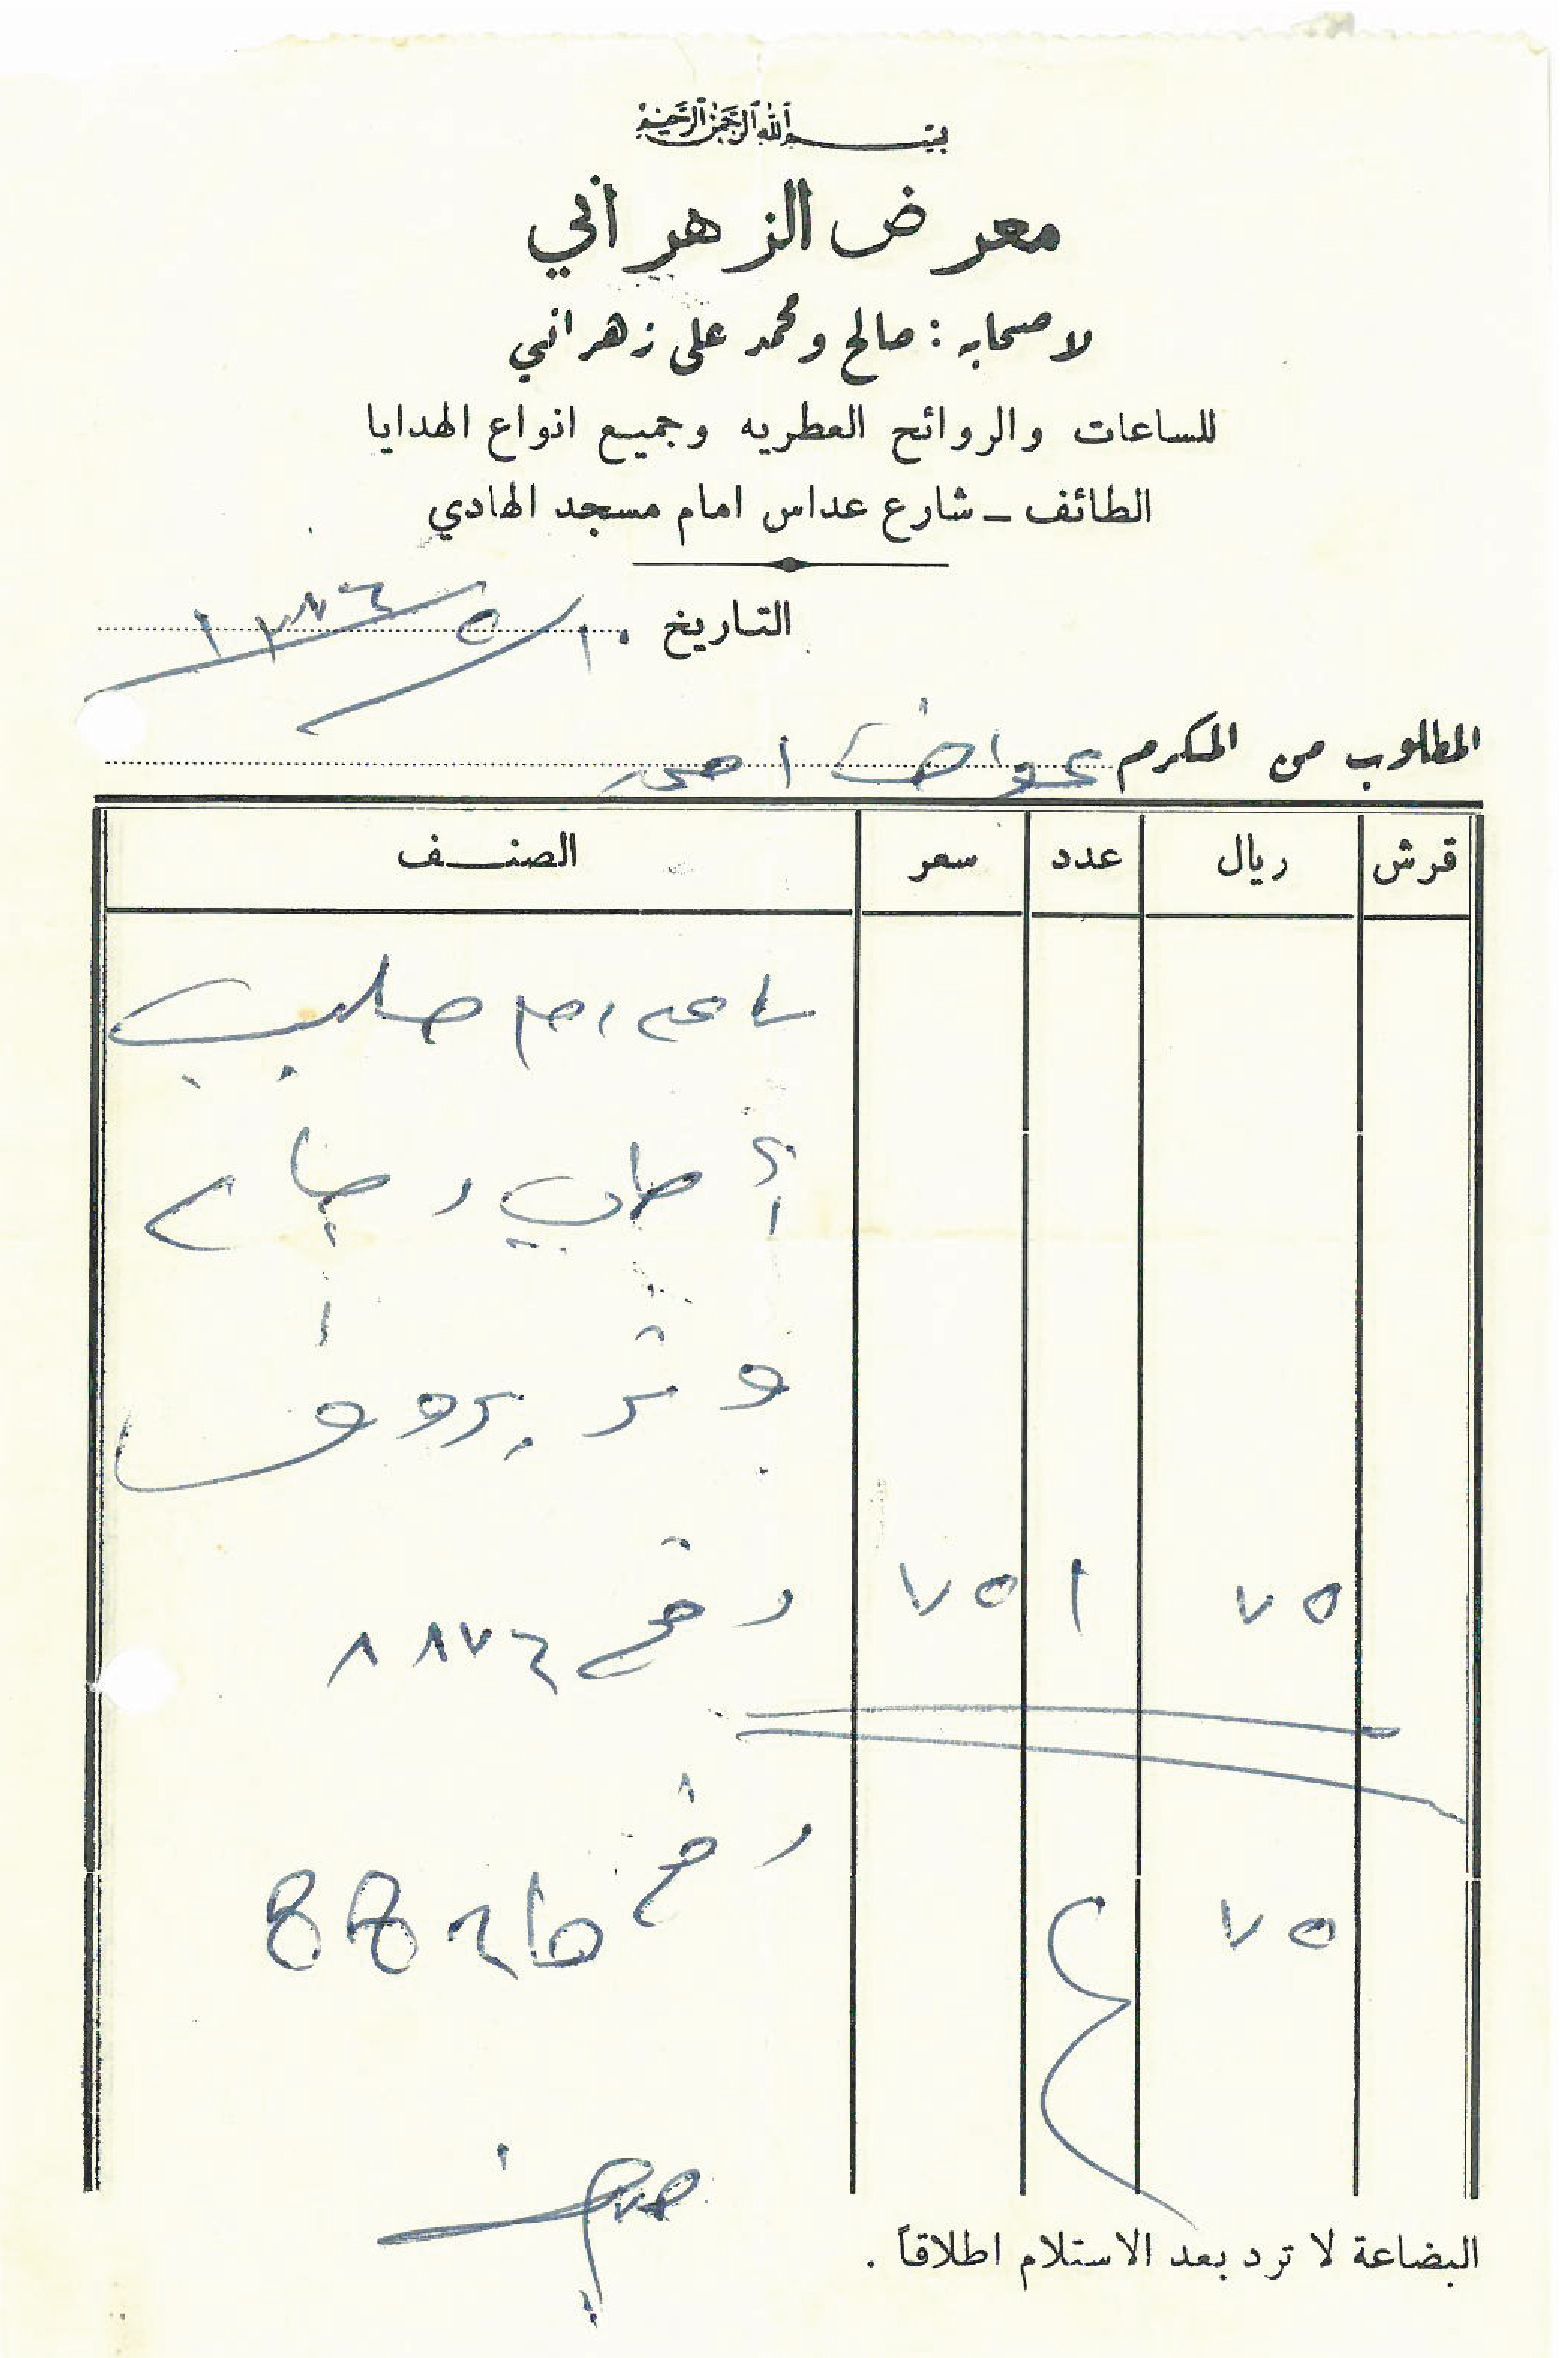 بسم الله الرحمن الرحيم
معرض الزهراني
لاصحابه : صالح ومحمد علي زهراني
للساعات والروائح العطريه وجميع انواع الهدايا
الطائف ــ شارع عداس امام مسجد الهادي
التاريخ ١٠ / ٥ / ١٣٨٦
المطلوب من المكرم عواض احمد
قرش ريال عدد سعر الصنف
ساعه ام صليب
أصلي
٧٥ ١ ٧٥ رقم ٨٨٧٦
٧٥ رقم
البضاعة لا ترد بعد الاستلام اطلاقاً .